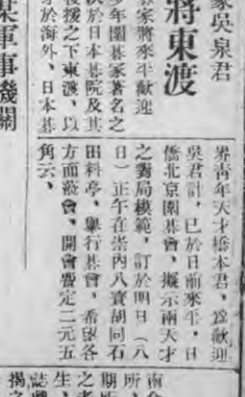 家吳泉君
將東渡
家將來平歡迎
少年圍碁家著名之
於日本碁院及其
後援之下東渡，以
於海外、日本碁
界靑年天才橋本君，爲歡迎
吳君計，已於日前來平，日
僑北京圍碁會，擬示兩天才
之對局模範，訂於明日（八
日）正午在崇內八寶胡同石
田料亭，舉行碁會，希望各
方面蒞會、開會費定二元五
角云、
軍事機關